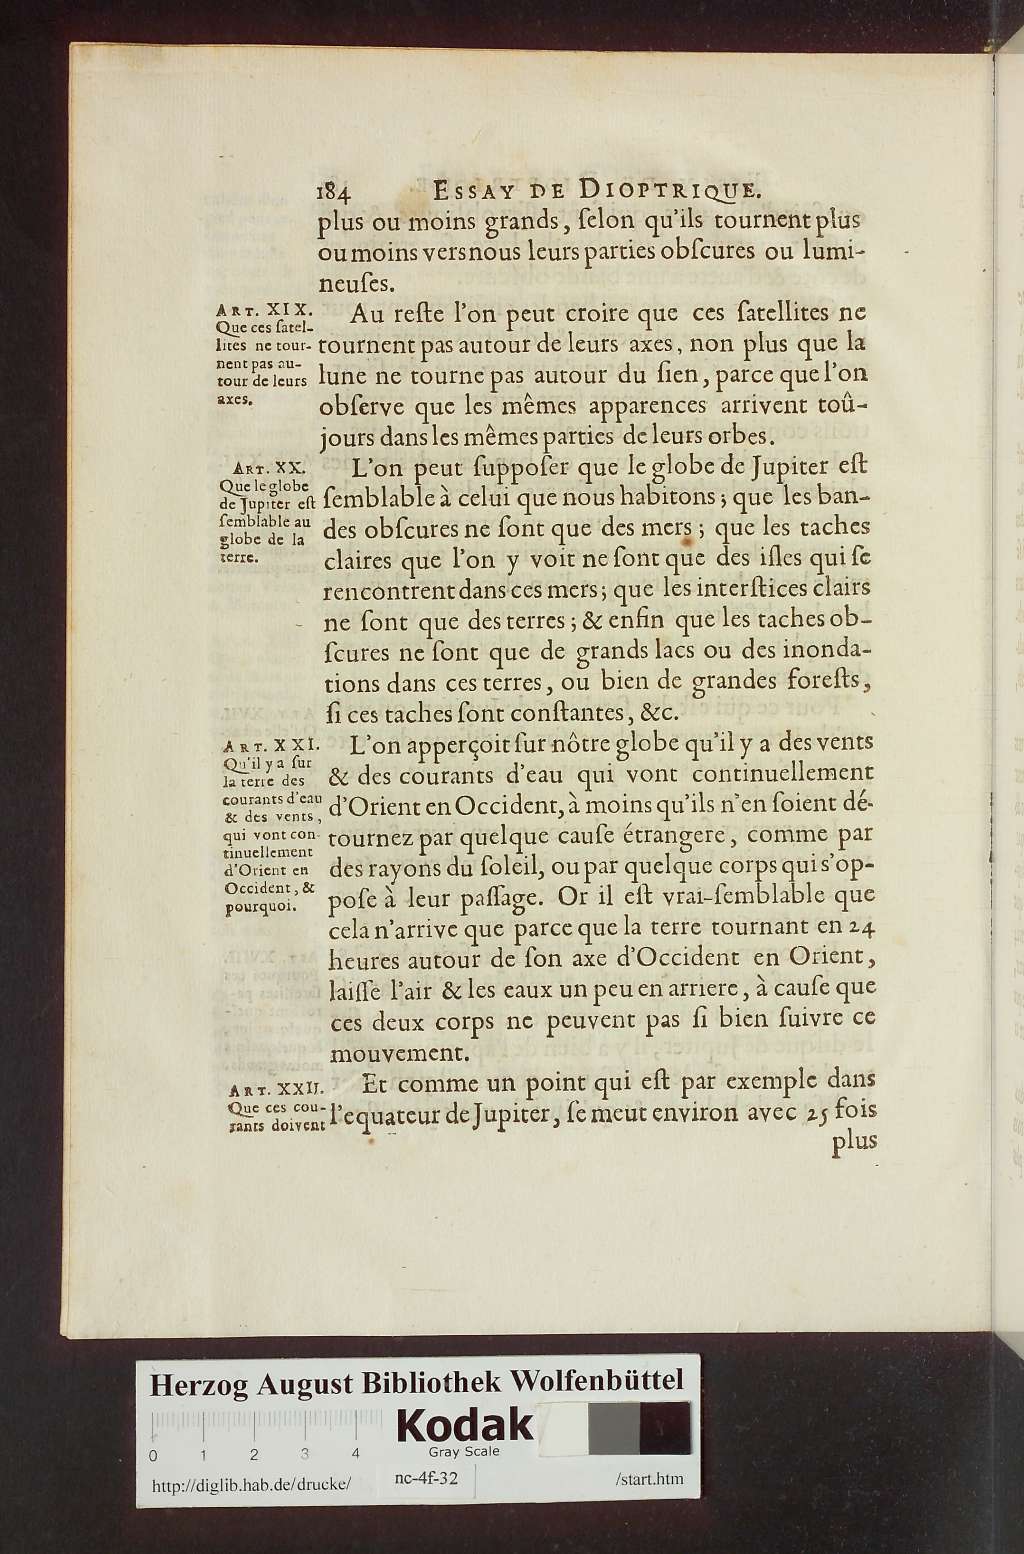 184 ESSAY DE DIOPTRIQUE.
plus ou moins grands, ſelon qu'ils tournent plus
ou moins vers nous leurs parties obſcures ou lumi-
neuſes.
ART. XIX.
Que ces ſatel-
lites ne tour-
nent pas au-
tour de leurs
axes.
Au reſte l'on peut croire que ces ſatellites ne
tournent pas autour de leurs axes, non plus que la
lune ne tourne pas autour du ſien, parce que l'on
obſerve que les mêmes apparences arrivent toû-
jours dans les mêmes parties de leurs orbes.
ART. XX.
Que le globe
de Jupiter eſt
ſemblable au
globe de la
terre.
L'on peut ſuppoſer que le globe de Jupiter eſt
ſemblable à celui que nous habitons; que les ban-
des obſcures ne ſont que des mers; que les taches
claires que l'on y voit ne ſont que des iſles qui ſe
rencontrent dans ces mers; que les interſtices clairs
ne ſont que des terres; & enfin que les taches ob-
ſcures ne ſont que de grands lacs ou des inonda-
tions dans ces terres, ou bien de grandes foreſts,
ſi ces taches ſont conſtantes, &c.
ART. XXI.
Qu'il y a ſur
la terre des
courants d'eau
& des vents,
qui vont con-
tinuellement
d'Orient en
Occident, &
pourquoi.
L'on apperçoit ſur nôtre globe qu'il y a des vents
& des courants d'eau qui vont continuellement
d'Orient en Occident, à moins qu'ils n'en ſoient dé-
tournez par quelque cauſe étrangere, comme par
des rayons du ſoleil, ou par quelque corps qui s'op-
poſe à leur paſſage. Or il eſt vrai-ſemblable que
cela n'arrive que parce que la terre tournant en 24
heures autour de ſon axe d'Occident en Orient,
laiſſe l'air & les eaux un peu en arriere, à cauſe que
ces deux corps ne peuvent pas ſi bien ſuivre ce
mouvement.
ART. XXII.
Que ces cou-
rants doivent
Et comme un point qui eſt par exemple dans
l'equateur de Jupiter, ſe meut environ avec 25 fois
plus
Herzog August Bibliothek Wolfenbüttel
Kodak
Gray Scale
0 1 2 3 4
http://diglib.hab.de/drucke/ nc-4f-32 /start.htm